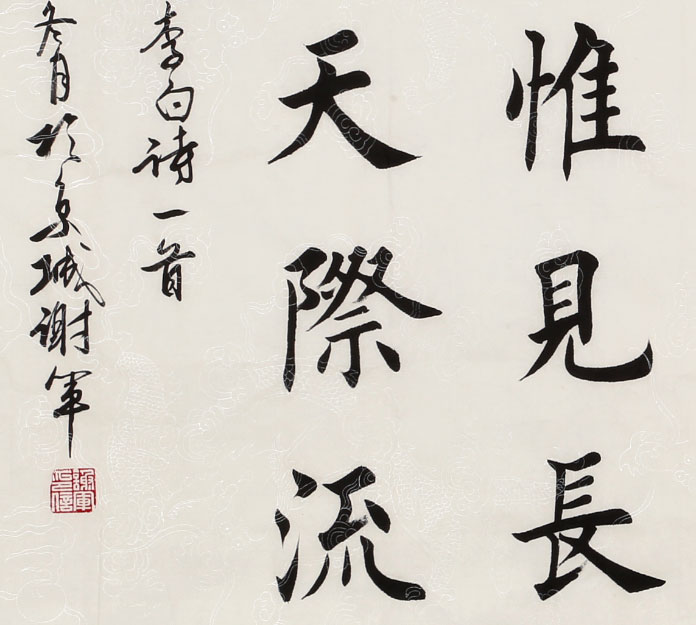 惟見長
天際流
李白诗一首
冬月於京城谢军
謝軍印信